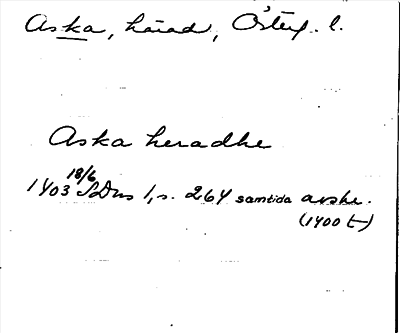 Aska, härad, Österg. l.
Aska heradhe
1403 18/6 SDns 1, s. 264 samtida avskr.
(1400 t—)